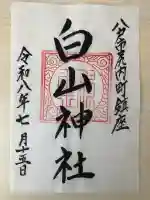 内町鎮座
白山神社
令和八年七月十五日